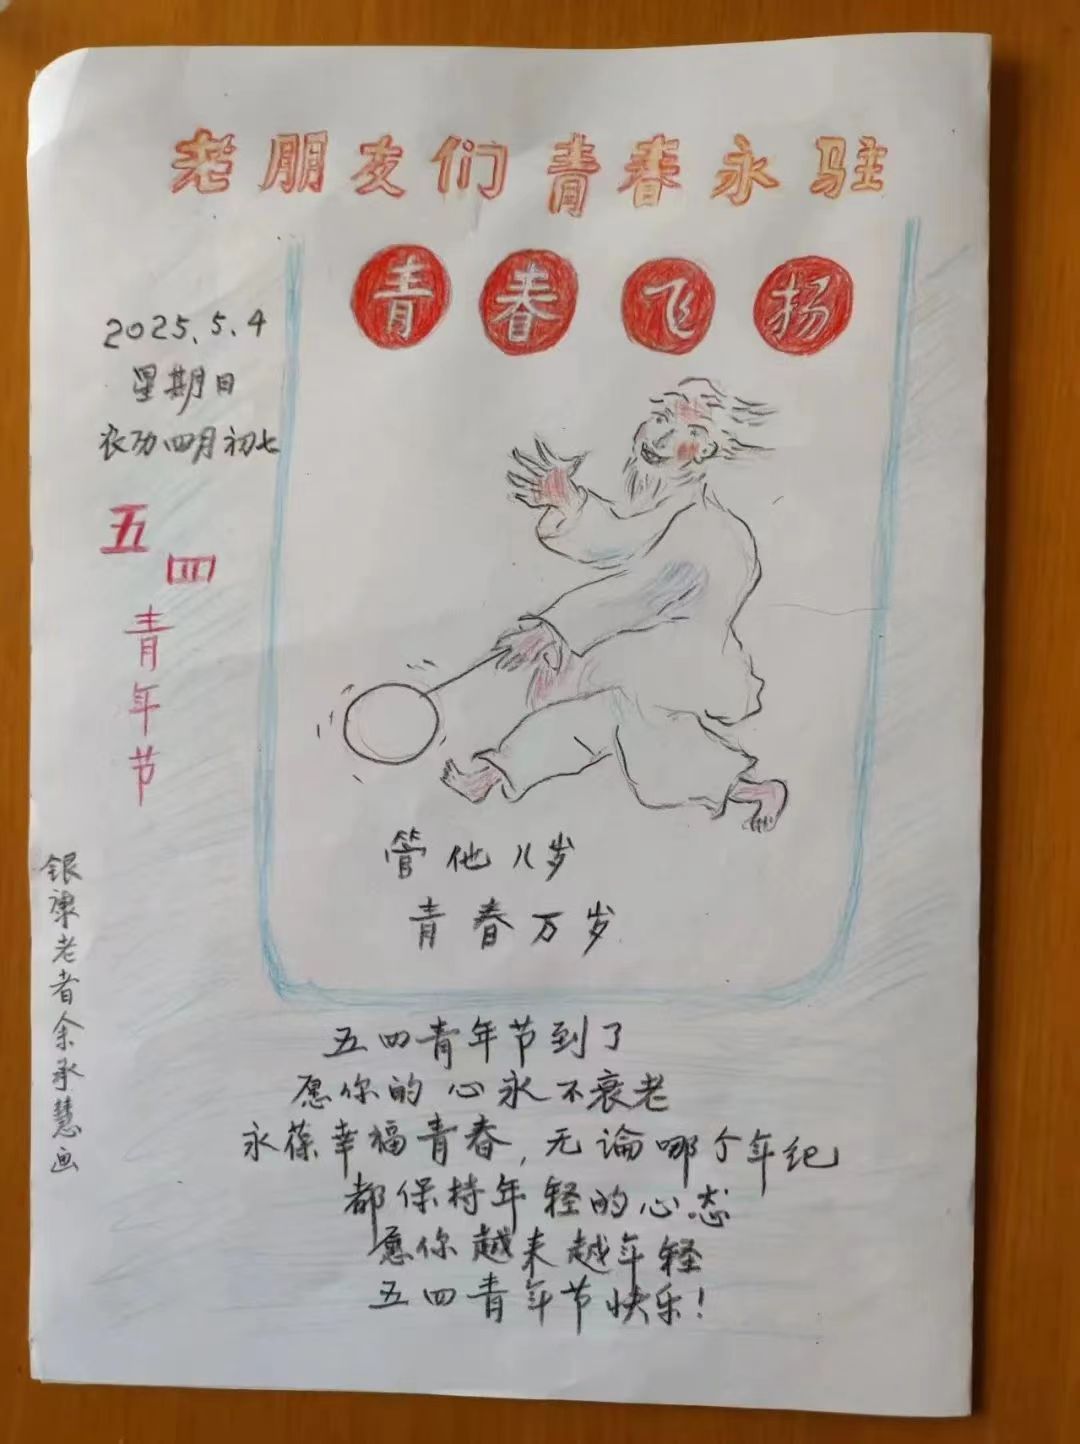 老朋友们 青春永驻
青春飞扬
2025.5.4
星期日
农历四月初七
五四
青年节
管他几岁
青春万岁
银康老者余承慧画
五四青年节到了
愿你的心永不衰老
永葆幸福青春，无论哪个年纪
都保持年轻的心态
愿你越来越年轻
五四青年节快乐！